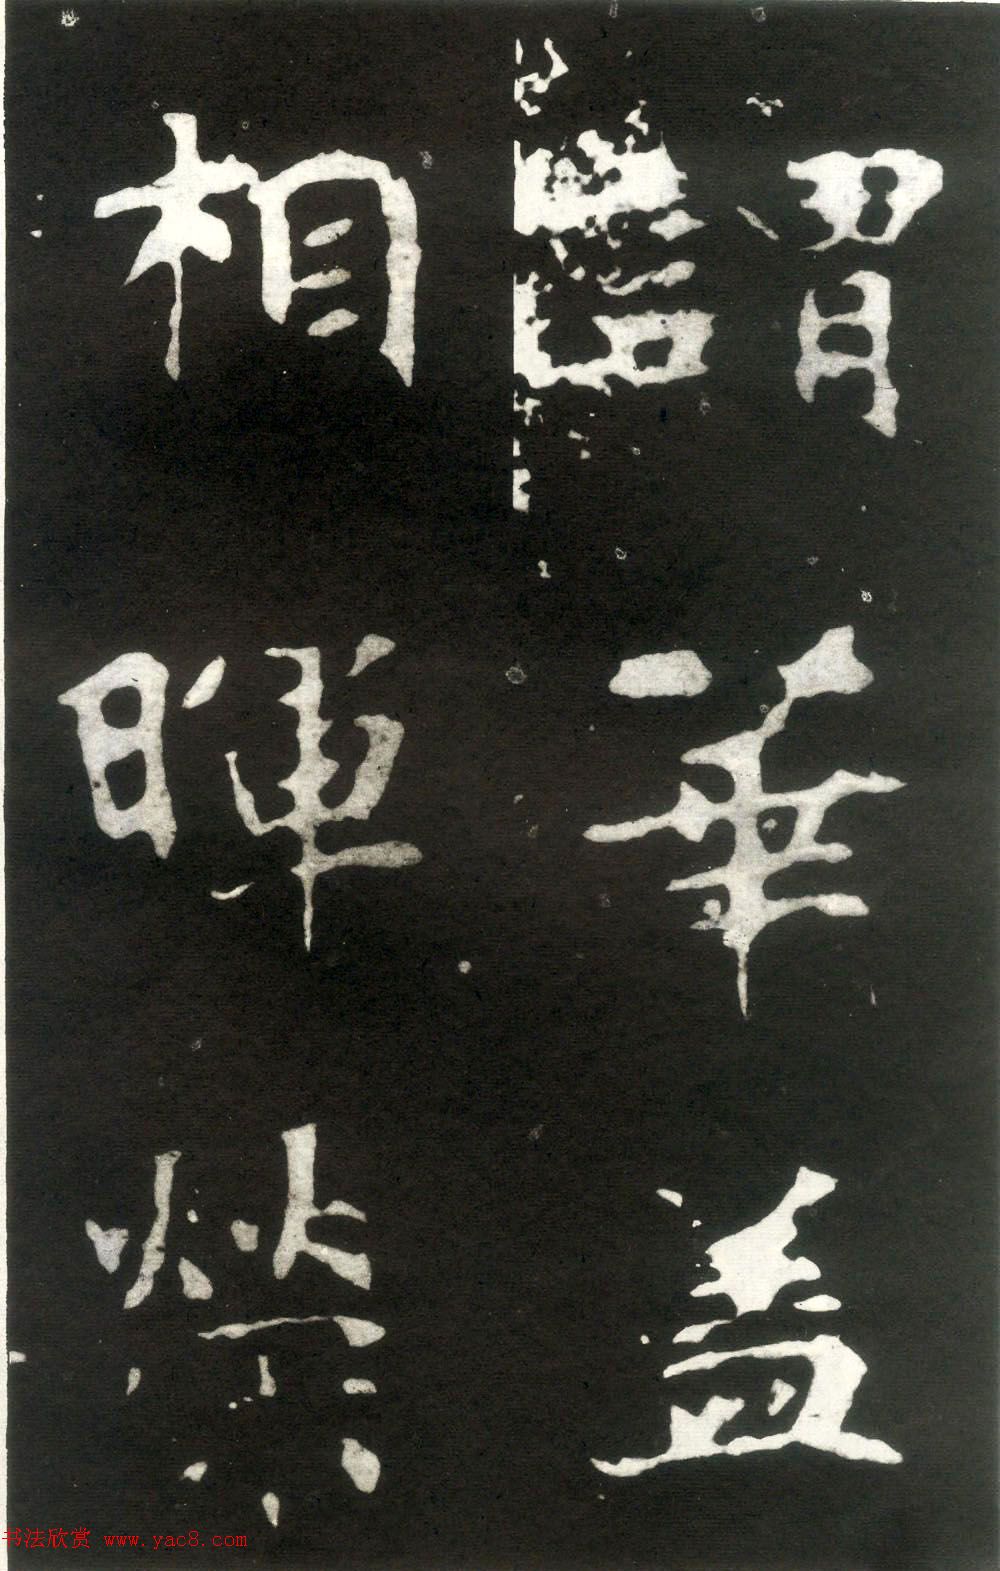 謂華盖
相暉榮
书法欣赏 www.yac8.com